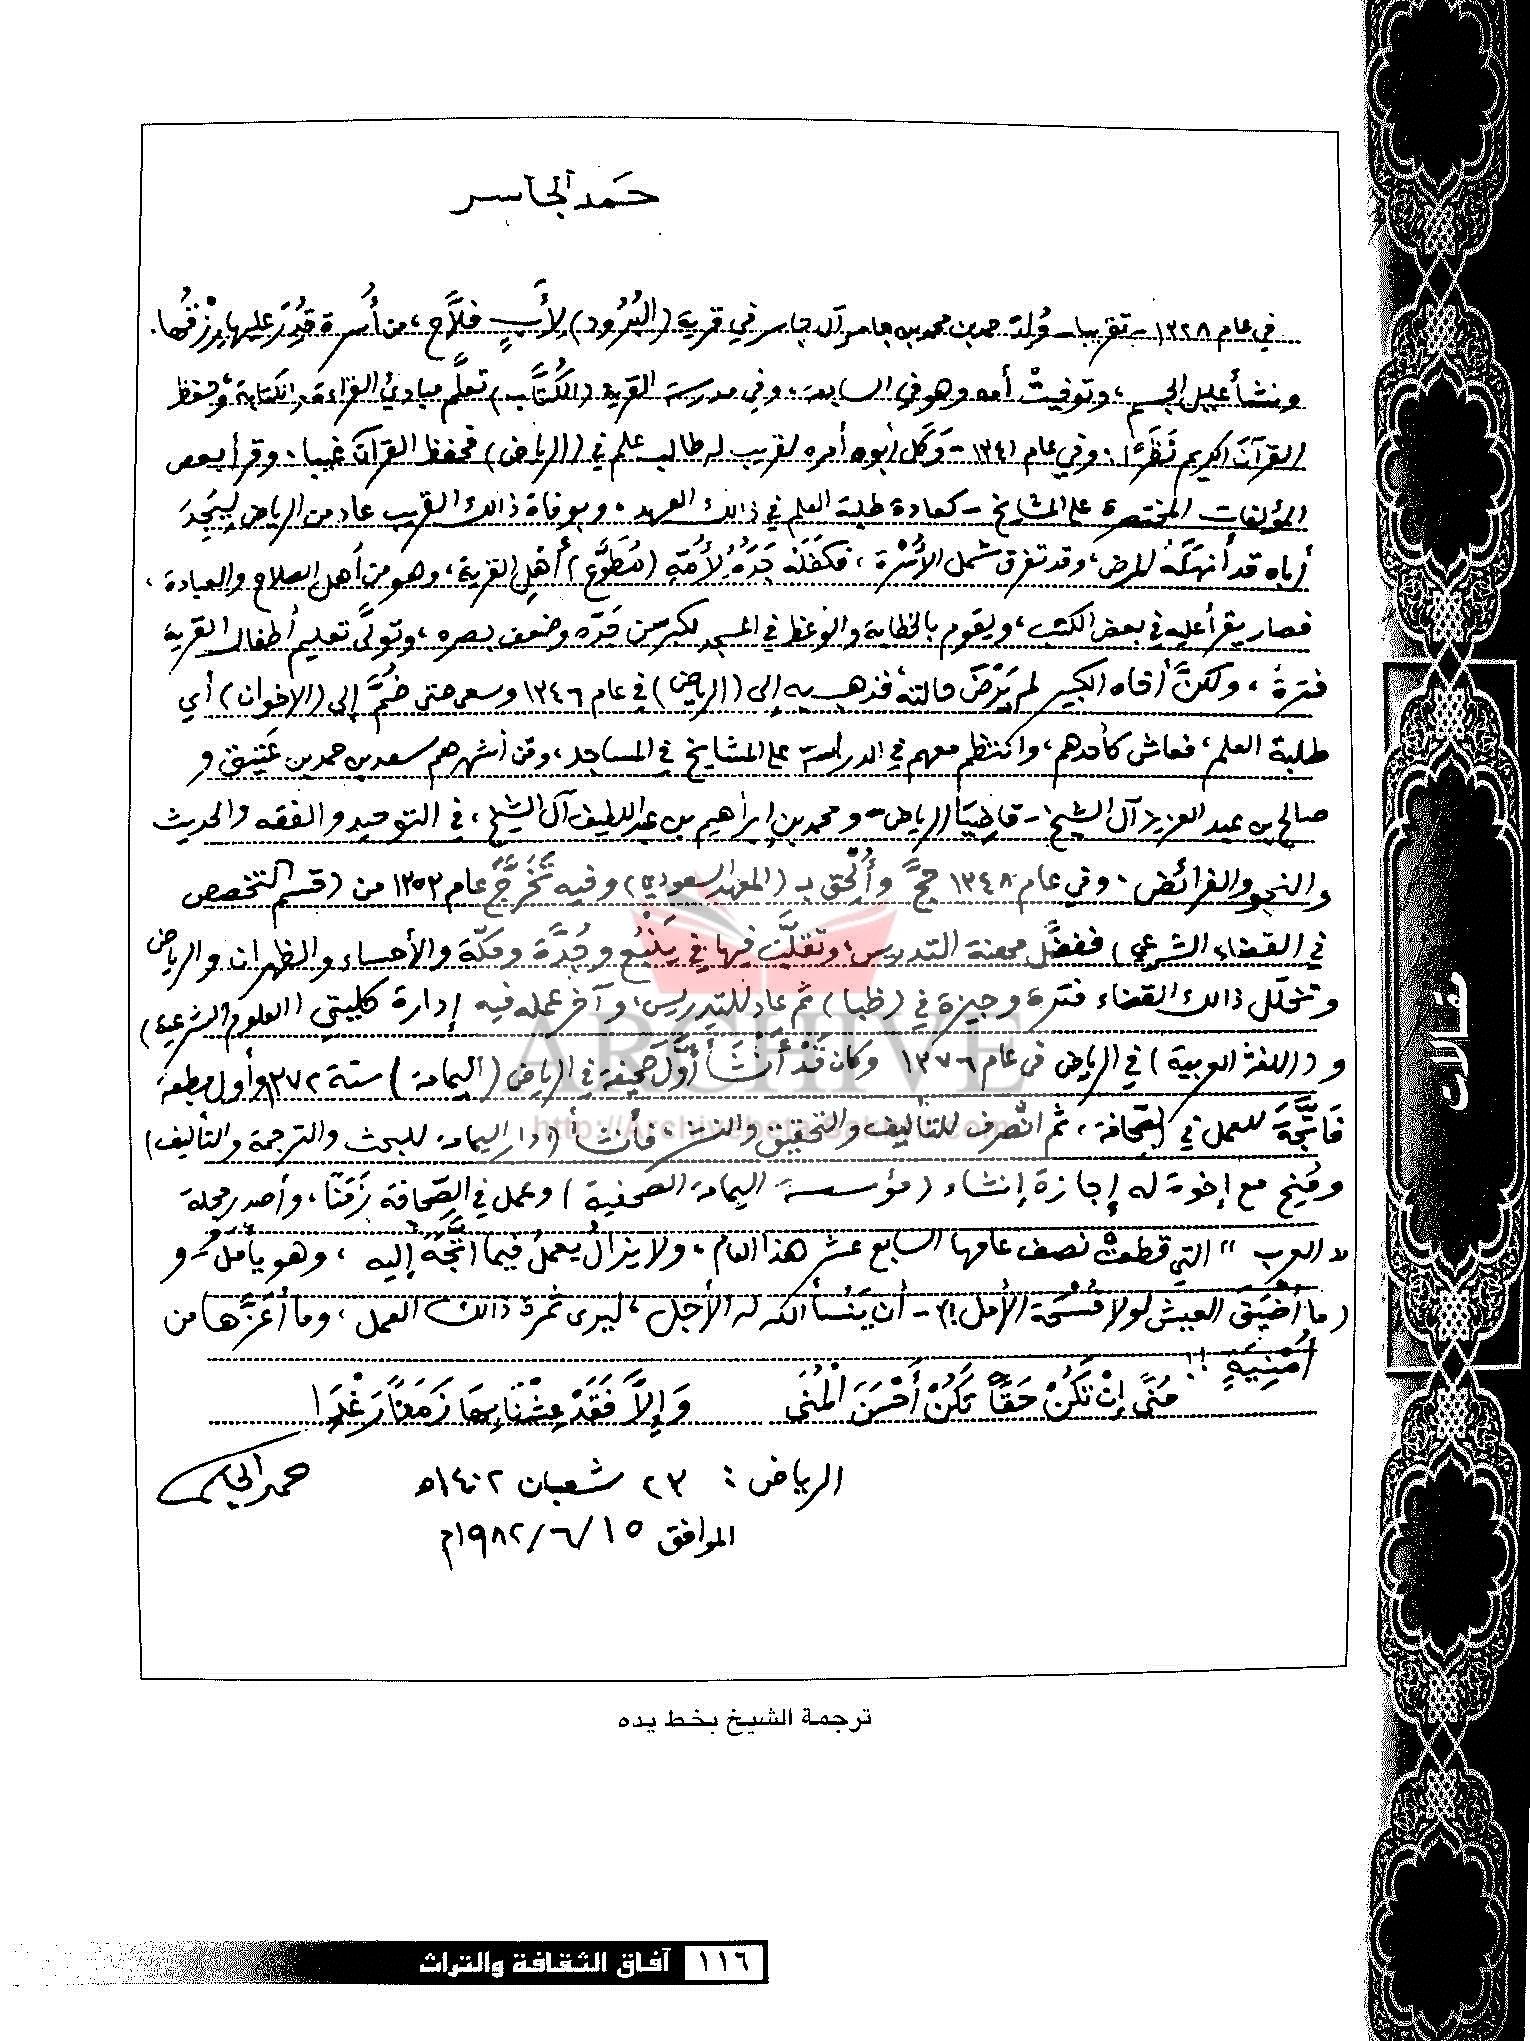 حَمد الجاسر
في عام ١٣٢٨ - تقريبا - وُلِدَ حمد بن محمد بن جاسر آل جاسر في قرية (البُرُود) لِأَبٍ فلَّاح، من أُسرة قُدِرَ عليها رِزْقُها.
ونشأ عليل الجسم، وتوفيتْ أمه وهو في السابعة، وفي مدرسة القرية (الكُتَّاب) تعلَّم مبادئ القراءة والكتابة، وحفظ
القرآن الكريم نَظَرًا. وفي عام ١٣٤١ - وَكَل أبوه أمره لقريب له طالب علم في (الرياض) فحفظ القرآن غيبا. وقرأ بعض
المؤلفات المختصرة على المشايخ - كعادة طلبة العلم في ذالك العهد، وبوفاة ذالك القريب عاد من الرياض لِيَجِدَ
أباه قد أنهكَهُ المرض، وقد تفرق شمل الأُسْرة، فكفَلَهُ جَدُّهُ لِأُمِّهِ (مُطَوَّع) أهْلِ القرية، وهو من أهل الصلاح والعبادة،
فصار يقرأ عليه في بعض الكتب، ويقوم بالخطابة والوعظ في المسجد لكبر سن جَدِّه وضعف بصره، وتولَّى تعليم أطفال القرية
فترةً، ولكنَّ أخاه الكبير لم يَرْضَ حالته، فذهب به إلى (الرياض) في عام ١٣٤٦ وسعى حتى ضُمَّ إلى (الاخوان) أي
طلبة العلم، فعاش كأحدهم، وانتظم معهم في الدراسة على المشايخ في المساجد، ومن أشهرهم سعد بن حمد بن عَتِيق و
صالح بن عبد العزيز آل الشيخ - قاضِيَا الرياض - ومحمد بن إبراهيم بن عبد اللطيف آل الشيخ، في التوحيد والفقه والحديث
والنحو والفرائض. وفي عام ١٣٤٨ حجَّ وأُلْحِقَ بـ (المعهد السعودي) وفيه تَخَرَّجَ عام ١٣٥٣ من (قسم التخصص
في القضاء الشرعي) ففضَّل مهنة التدريس، وتقلَّب فيها في يَنْبُع وجُدَّة ومكّة والأحساء والظهران والرياض
وتخلّل ذالك القضاء فترة وجيزة في (ظبا) ثم عاد للتدريس، وآخر عمله فيه إدارة كليتي (العلوم الشرعية)
و (اللغة العربية) في الرياض في عام ١٣٧٦ وكان قَدْ أَنْشَأَ أوَّلَ صَحِيفة في الرياض (اليمامة) سنة ١٣٧٢ وأول مطبعة
فَاتَّجَهَ للعمل في الصِّحافة، ثم انْصرف للتأليف والتحقيق والنشر، فأنشأ (دار اليمامة للبحث والترجمة والتأليف)
ومُنِح مع إخوة له إجازة إنشاء (مؤسسة اليمامة الصحفية) وعمل في الصِّحافة زَمَنًا، وأصدر مجلة
"العرب" التي قطعتْ نصف عامها السابع عشر هذا العام، ولا يزالُ يعملُ فيما اتَّجَهَ إليه، وهو يأملُ - و
(ما أضْيَقَ العيش لولا فُسْحَة الأمل!) - أن يَنْسأ الله له الأجل، ليرى ثمرة ذالك العمل، وما أعَزَّها من
أُمْنِيَةٍ!!
مُنًى إنْ تَكُنْ حَقًّا تَكُنْ أَحْسَنَ الْمُنَى وَإلَّا فَقَدْ عِشْنَا بِهَا زَمَنًا رَغْدَا
الرياض: ٢٣ شعبان ١٤٠٢هـ حمد الجاسر
الموافق ١٥/٦/١٩٨٢م
ترجمة الشيخ بخط يده
مقالات
ARCHIVE
١١٦ آفاق الثقافة والتراث